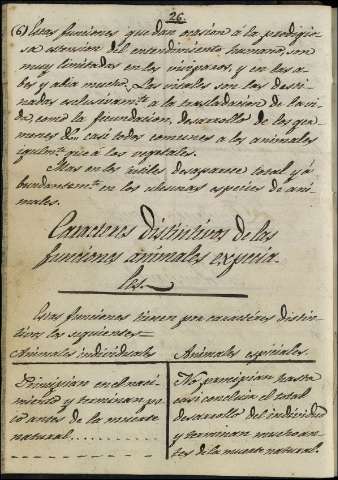 26.
(6) Estas funciones que dan ocasión á la prodigio-
sa estension del entendimiento humano, son
muy limitadas en los viviparos, y en las a-
bes y abia mucho. Las vitales son las desti-
nadas esclusivam.te á la trasladacion de la vi-
da, como la fecundacion, desarrollo de los ger-
menes &c. casi todos comunes a los animales
igualm.te que á los vegetales.
Mas en los rectiles desaparece total y á
bundantem.te en los algunas especies de ani-
males.
Caracteres distintivos de las
funciones animales especia-
les.
Estas funciones tienen por caractéres distin-
tivos los siguientes=
Animales individuales
Principian en el naci-
miento y terminan po-
co antes de la muerte
natural..........
Animales especiales.
No principian hasta
casi concluir el total
desarrollo del individuo
y terminan mucho an-
tes de la muerte natural.